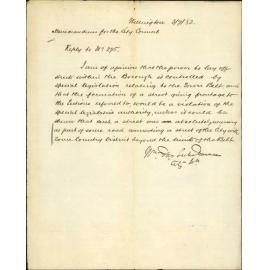 Wellington
Memorandum for the City Council
Reply to No 295.
I am of opinion that the power to lay off
streets within the Borough is controlled by
special legislation relating to the Town Belt and
that the formation of a street giving frontage to
the sections referred to would be a violation of the
special legislative authority, unless it could be
shewn that such a street was absolutely necessary
as part of some road connecting a street of the City with
some Country District beyond the limits of the Belt.